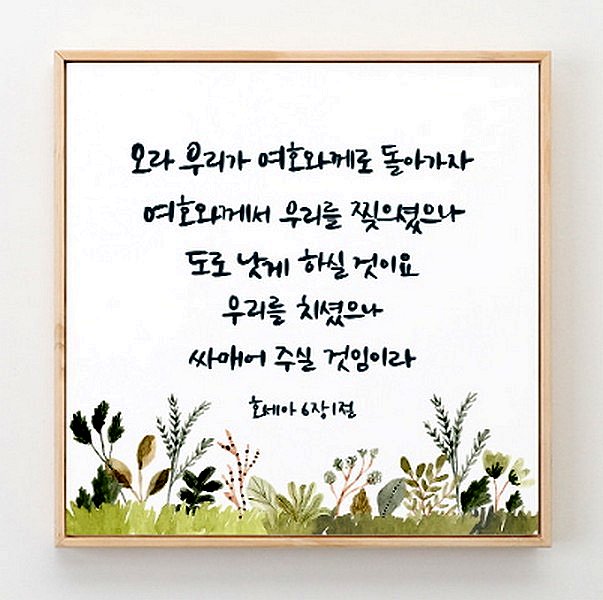 오라 우리가 여호와께로 돌아가자
여호와께서 우리를 찢으셨으나
도로 낫게 하실 것이요
우리를 치셨으나
싸매어 주실 것임이라
호세아 6장1절